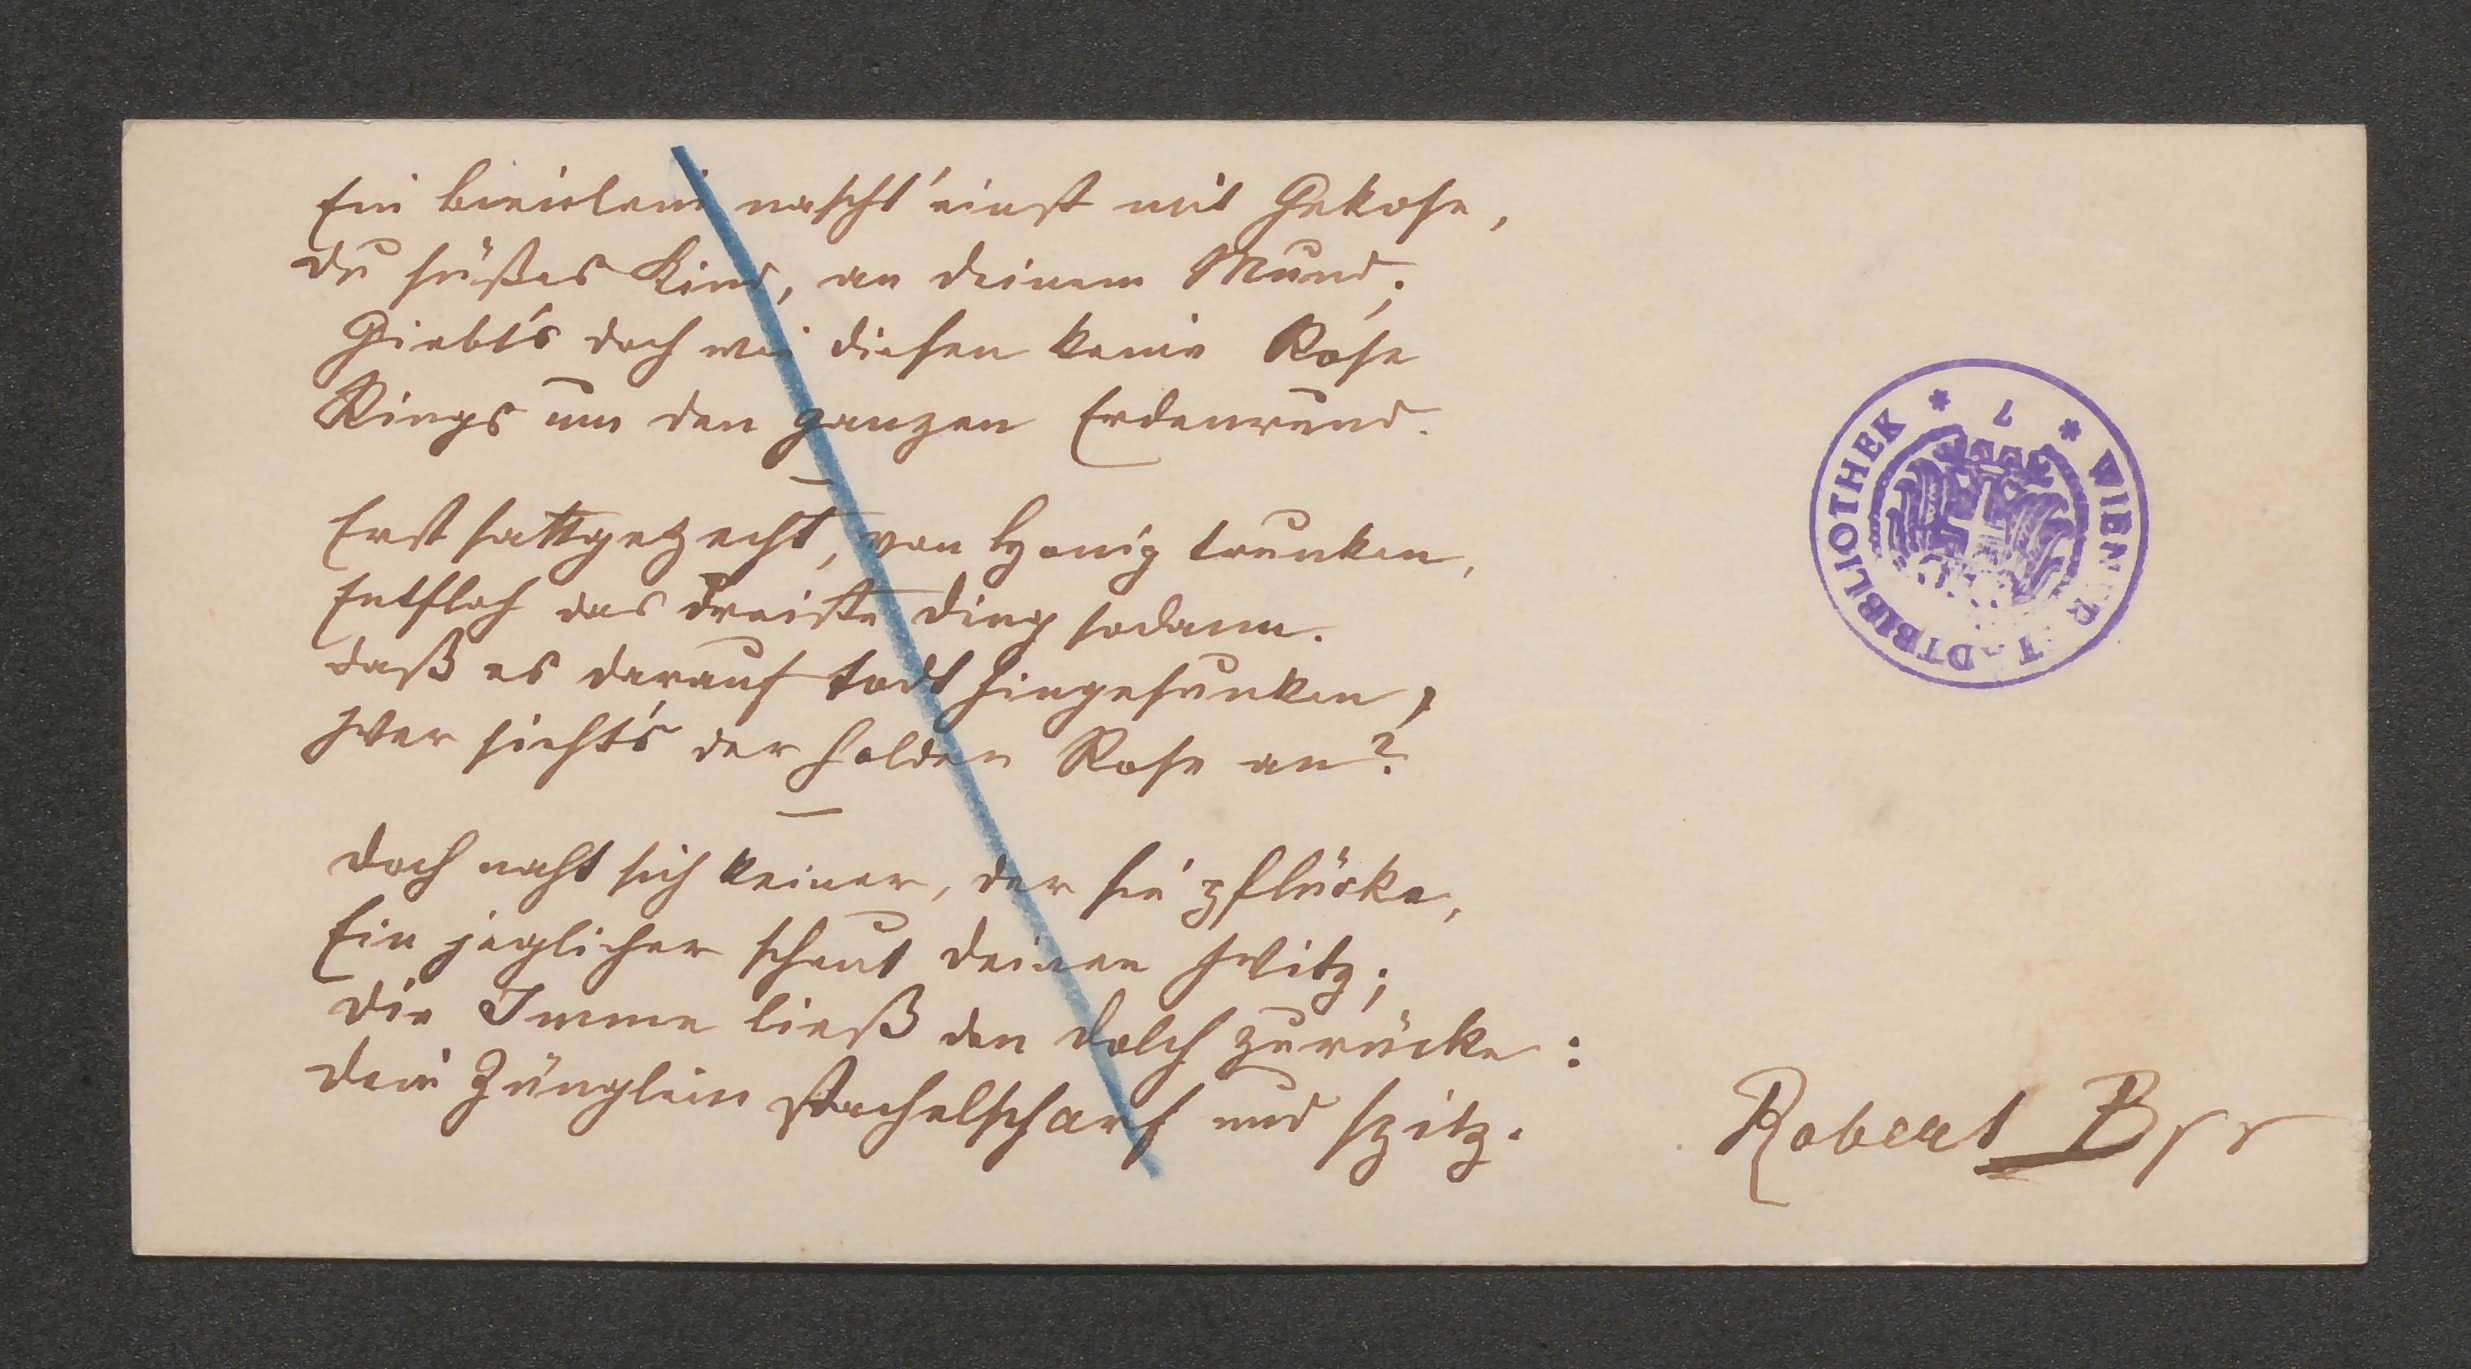 Ein Bienlein nascht' einst mit Gekose,
Du süßes Kind, an deinem Mund;
Giebt's doch wie diesen keine Rose
Rings um den ganzen Erdenrund.
—
Erst sattgezecht, von Honig trunken,
Entfloh das dreiste Ding sodann.
Daß es darauf todt hingesunken,
Wer sieht's der holden Rose an?
—
Doch naht sich keiner, der sie pflücke,
Ein jeglicher scheut deinen Witz;
Die Imme ließ den Dolch zurücke:
Dein Zünglein stachelscharf und spitz.
Robert Byr
* 7 *
WIENER STADTBIBLIOTHEK